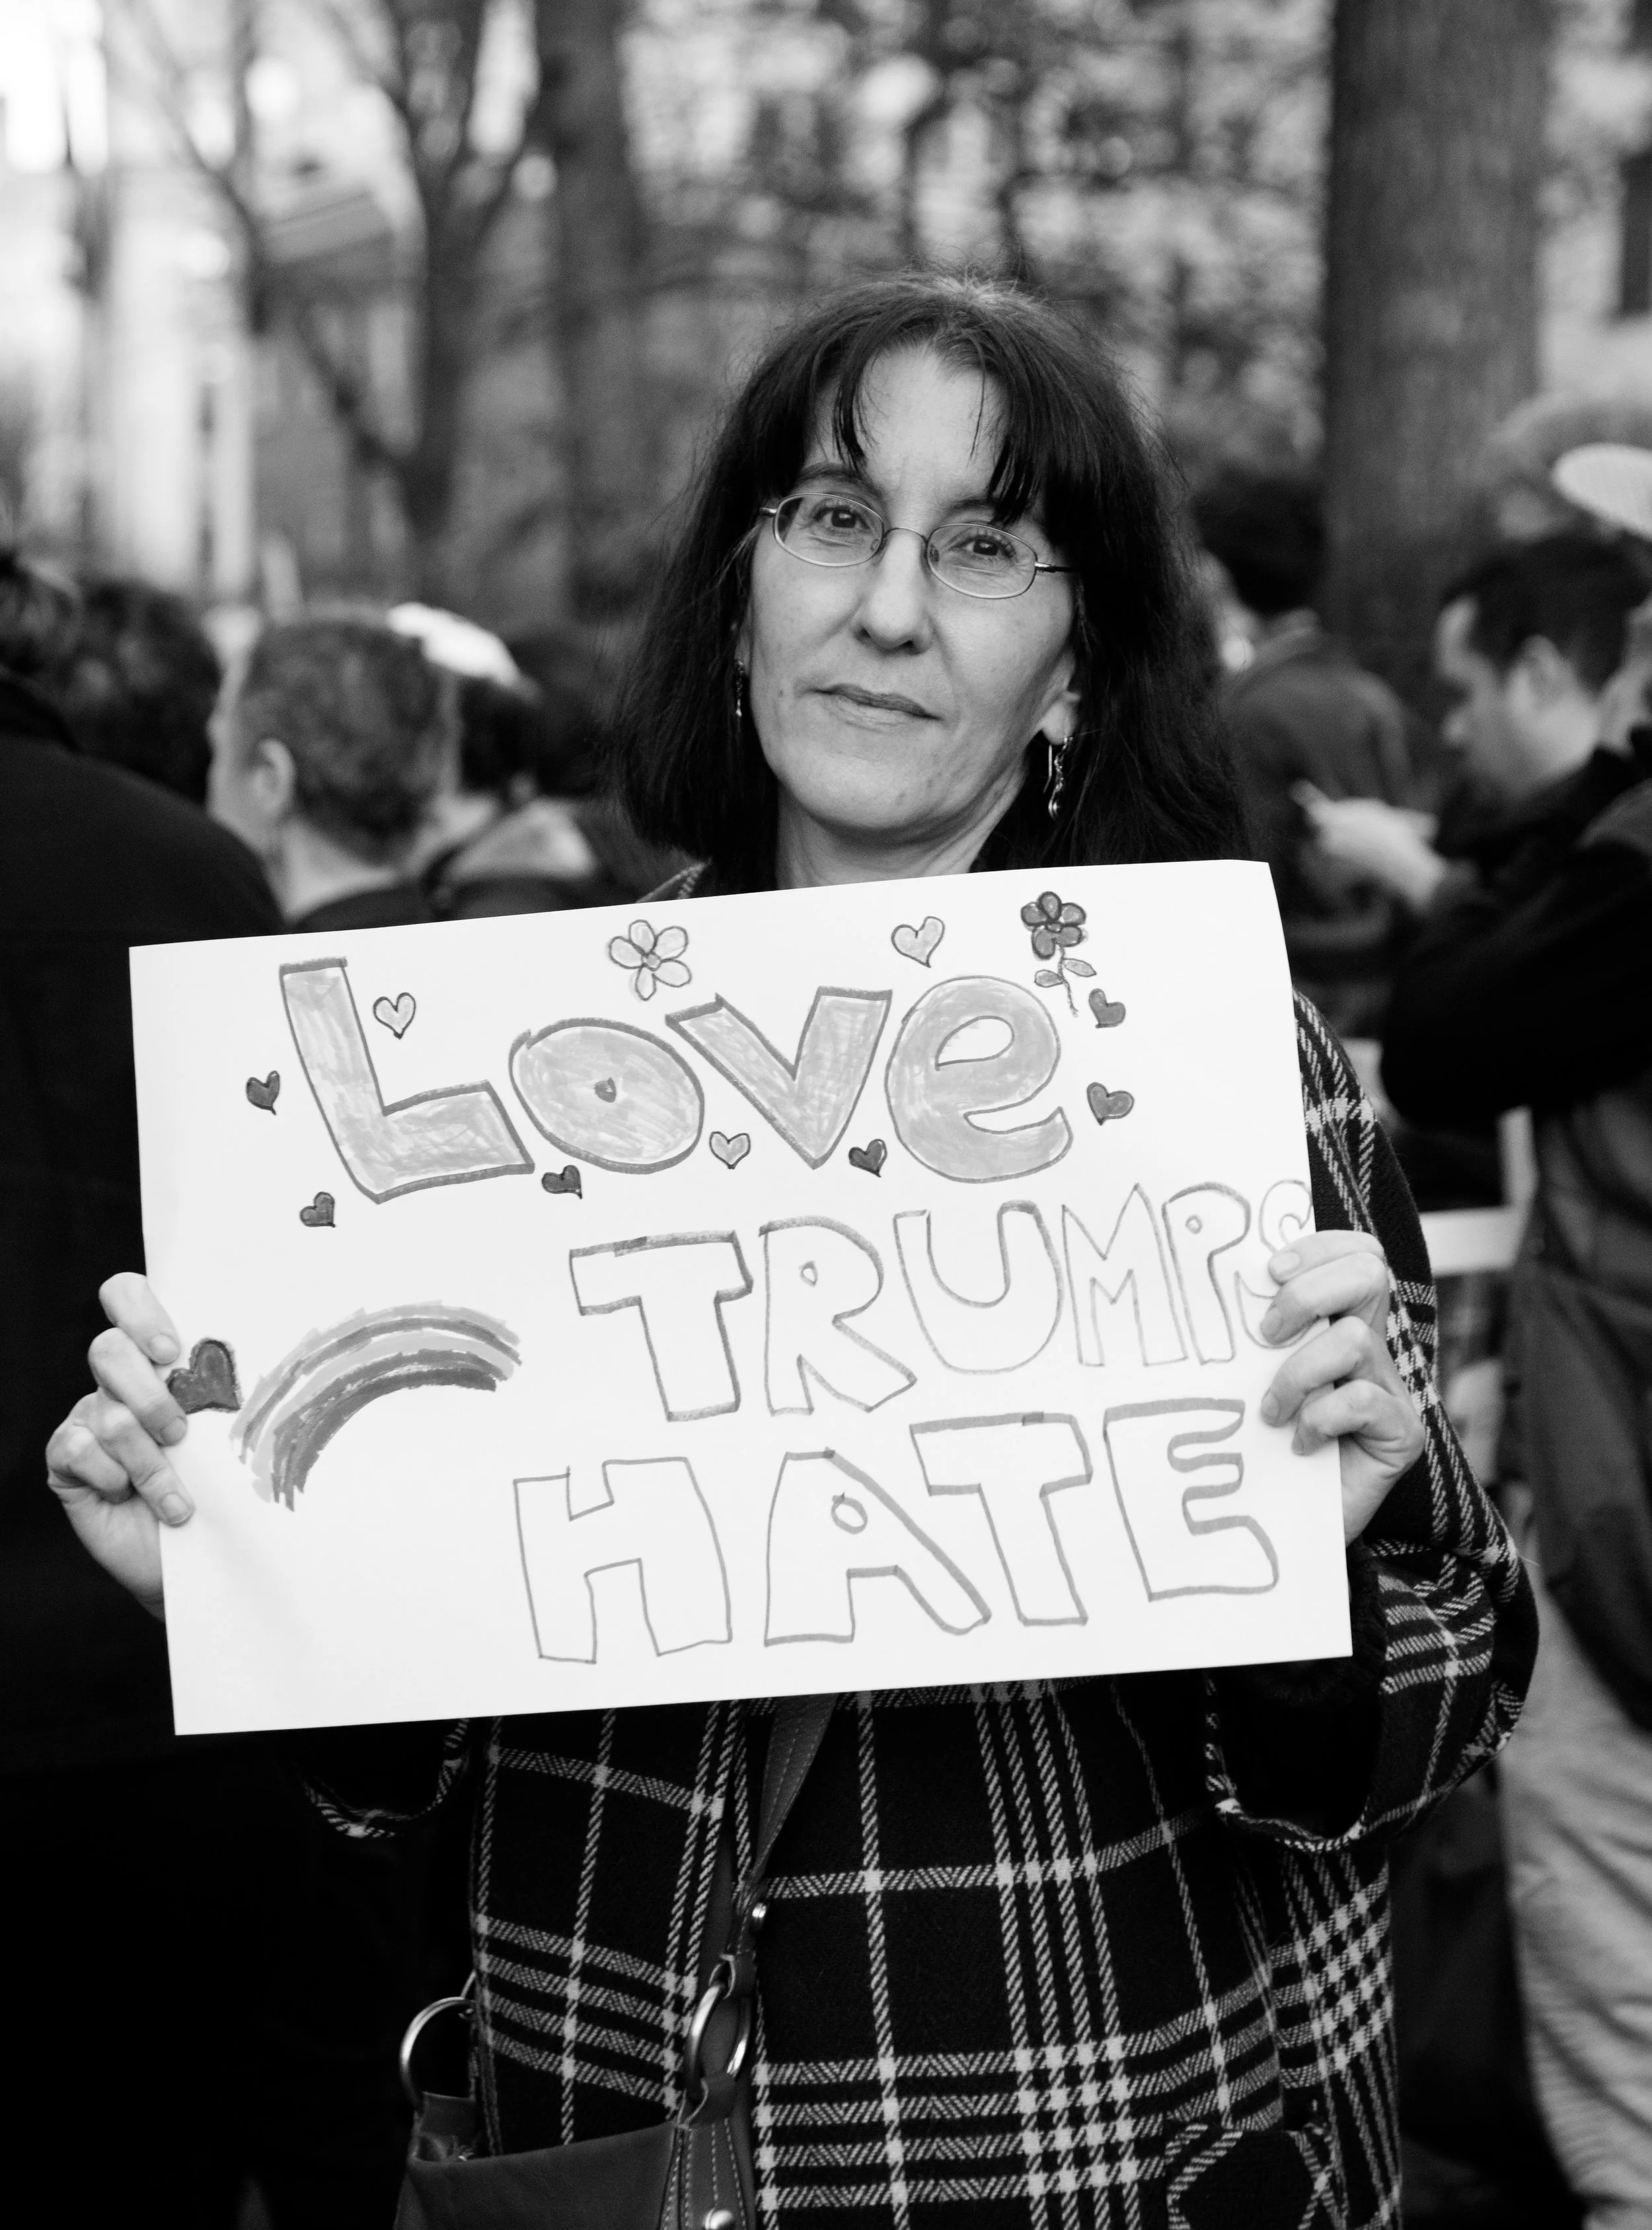 Love
TRUMPS
HATE